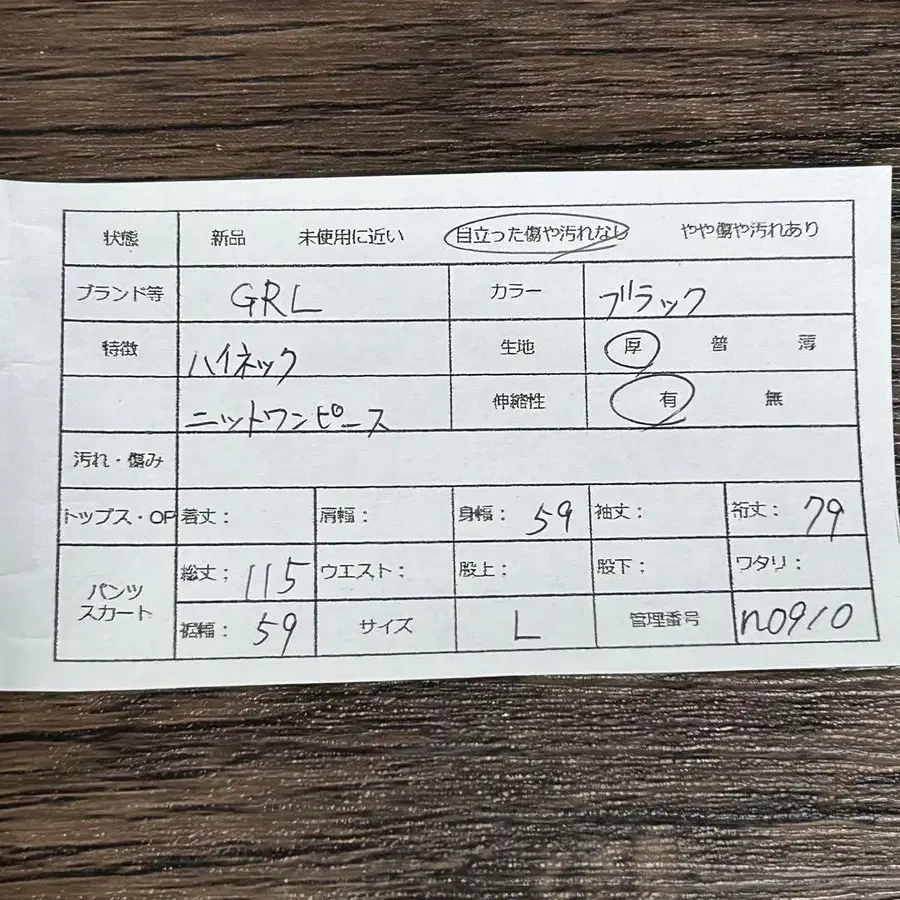 状態 新品 未使用に近い 目立った傷や汚れなし やや傷や汚れあり
ブランド等 GRL カラー ブラック
特徴 ハイネック 生地 厚 普 薄
ニットワンピース 伸縮性 有 無
汚れ・傷み
トップス・OP 着丈: 肩幅: 身幅: 59 袖丈: 裄丈: 79
パンツ スカート 総丈; 115 ウエスト: 股上: 股下: ワタリ:
裾幅: 59 サイズ L 管理番号 n0910